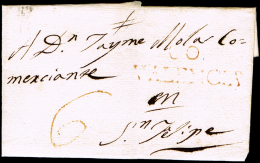 A D.n Jayme Mola Co-
merciante
VALENCIA
6
en
S.n Felipe